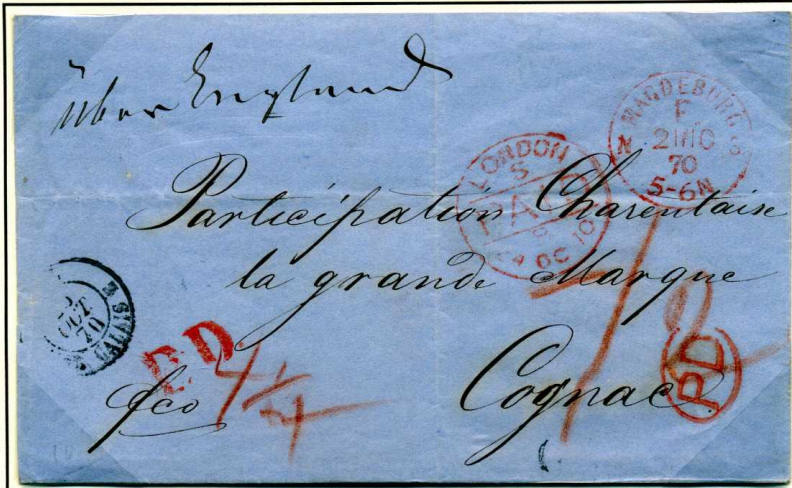 über England
MAGDEBURG
F
2III0
70
5-6N
N
LONDON
S
PAID
4 OC 70
Participation Charentaise
la grande Marque
OCT
70
CALAIS
P.D.
fco
Cognac
PD